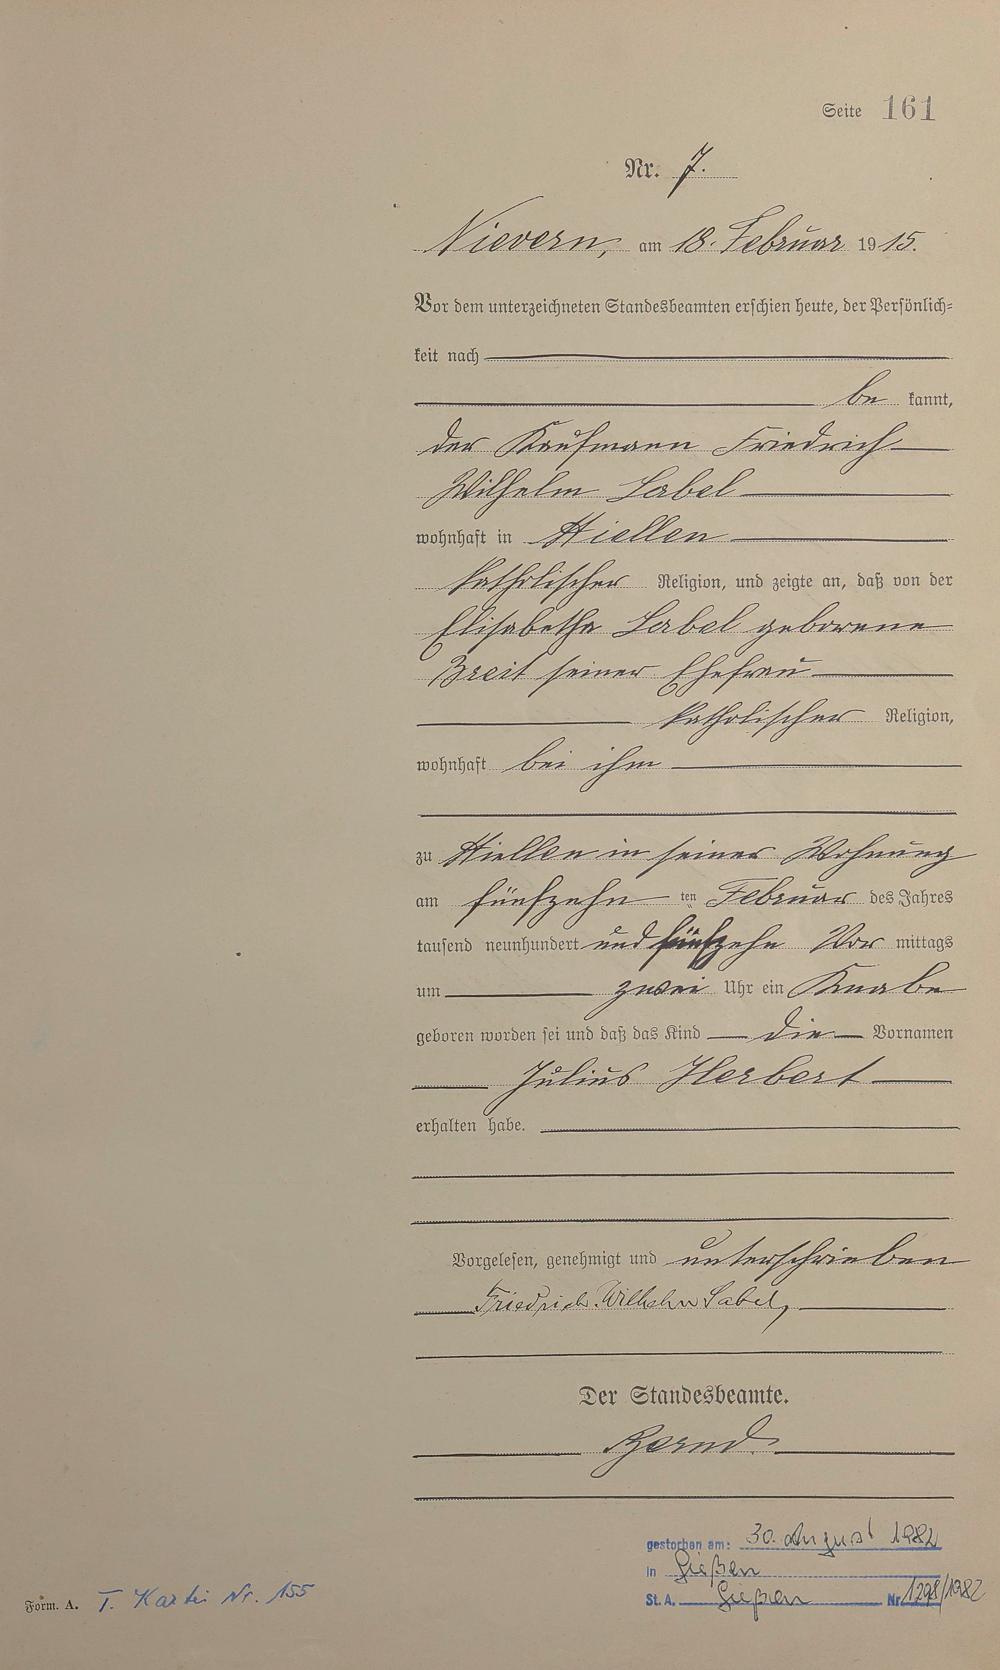 Seite 161
Nr. 7.
Nievern, am 18. Februar 1915.
Vor dem unterzeichneten Standesbeamten erschien heute, der Persönlich=
keit nach
be kannt,
der Kaufmann Friedrich
Wilhelm Sabel
wohnhaft in
katholischer Religion, und zeigte an, daß von der
Elisabetha Sabel geborene
Breit seiner Ehefrau
katholischer Religion,
wohnhaft bei ihm
zu in seiner Wohnung
am fünfzehn ten Februar des Jahres
tausend neunhundert und fünfzehn Vor mittags
um zwei Uhr ein Knabe
geboren worden sei und daß das Kind die Vornamen
Julius Herbert
erhalten habe.
Vorgelesen, genehmigt und unterschrieben
Friedrich Wilhelm Sabel,
Der Standesbeamte.
gestorben am: 30. August 1982
in Gießen
St. A. Gießen Nr. 1298/1982
Form. A. T. Kartei Nr. 155